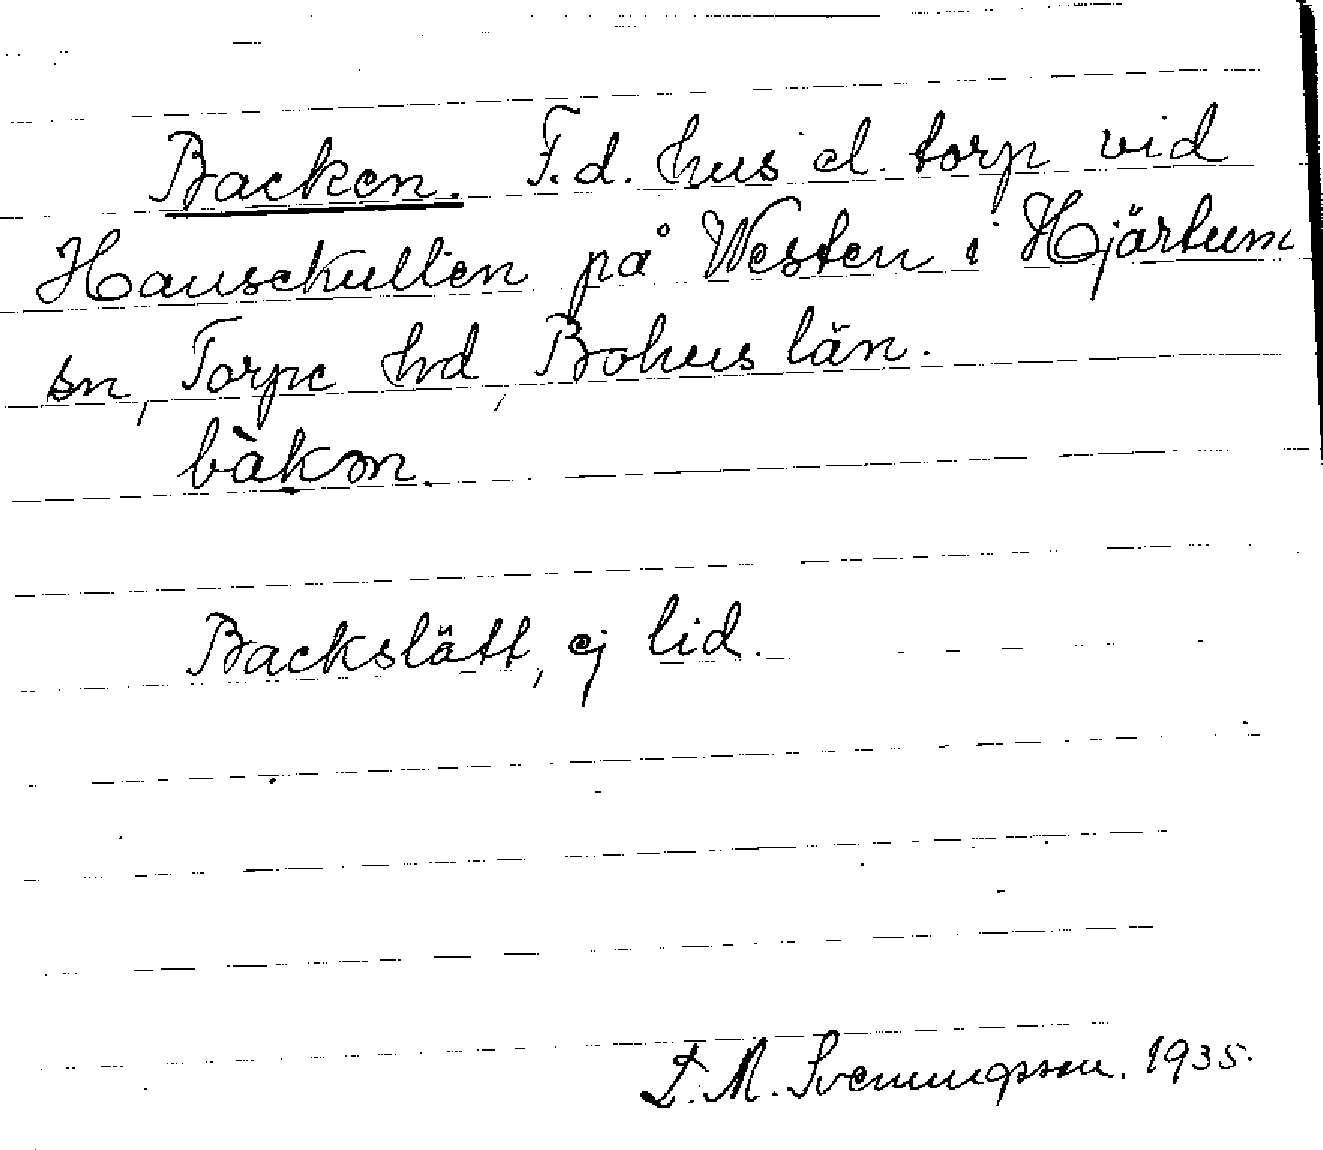 Backen. F.d. hus el. torp vid
Hausekullen på Westen i Hjärtum
sn, Torpe hd, Bohus län.
bàkɷn.
Backslätt, ej lid.
F. M. Svenungsson. 1935.